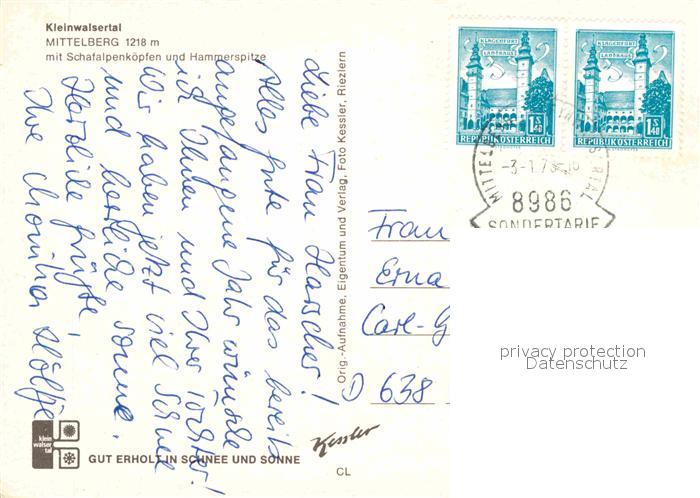 Kleinwalsertal
MITTELBERG 1218 m
mit Schafalpenköpfen und Hammerspitze
Liebe Frau Harscher!
Alles Gute für das bereits
angefangene Jahr wünsche
ich Ihnen und Ihrer Tochter!
Wir haben jetzt viel Schnee
und herrliche Sonne.
Herzliche Grüße,
Ihre
Orig.-Aufnahme, Eigentum und Verlag, Foto Kessler, Riezlern
KLAGENFURT
LANDHAUS
1S40
REPUBLIK ÖSTERREICH
KLAGENFURT
LANDHAUS
1S40
REPUBLIK ÖSTERREICH
-3-1.7
8986
SONDERTARIF
Frau
Erna
Carl-G
D 638
privacy protection
Datenschutz
klein
walser
tal
GUT ERHOLT IN SCHNEE UND SONNE
Kessler
CL